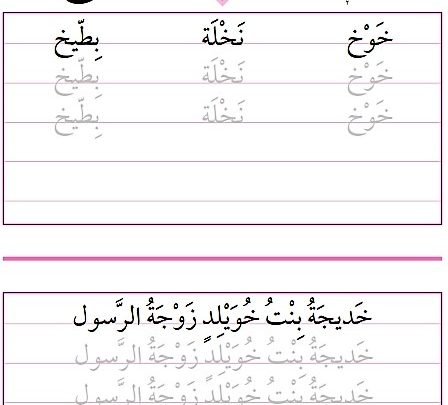 خَوْخ نَخْلَة بِطّيخ
خَوْخ نَخْلَة بِطّيخ
خَوْخ نَخْلَة بِطّيخ
خَديجَةُ بِنْتُ خُوَيْلِدٍ زَوْجَةُ الرَّسول
خَديجَةُ بِنْتُ خُوَيْلِدٍ زَوْجَةُ الرَّسول
خَديجَةُ بِنْتُ خُوَيْلِدٍ زَوْجَةُ الرَّسول